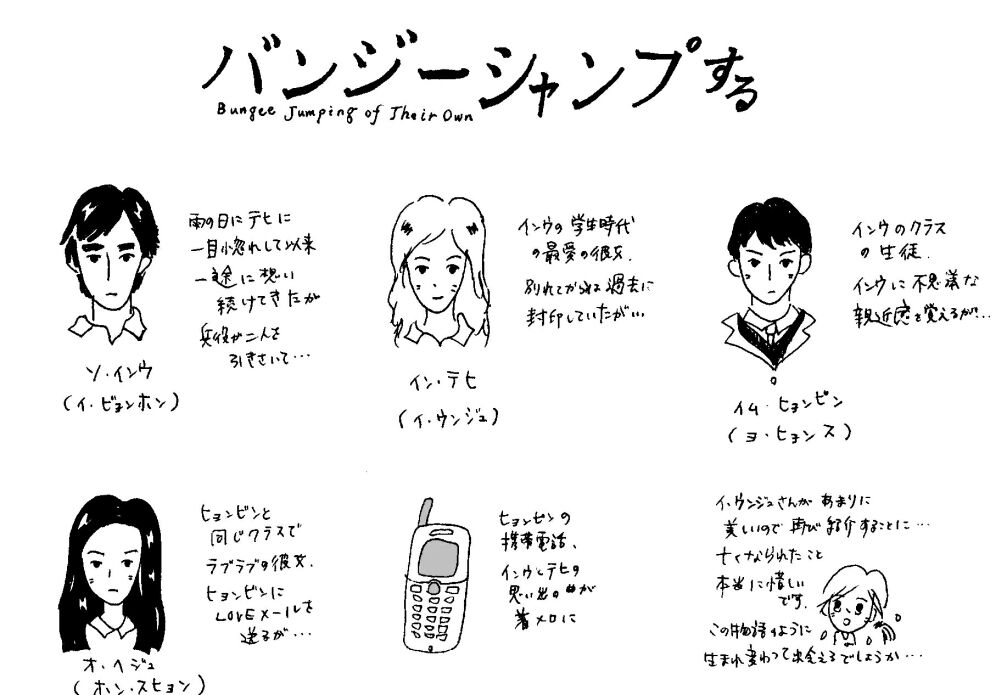 バンジージャンプする
Bungee Jumping of Their Own
雨の日にテヒに
一目惚れして以来
一途に想い
続けてきたが
兵役が二人を
引きさいて…
ソ・インウ
(イ・ビョンホン)
インウの学生時代
の最愛の彼女.
別れてから過去に
封印していたが…
イン・テヒ
(イ・ウンジュ)
インウのクラス
の生徒.
インウに不思議な
親近感を覚えるが…
イム・ヒョンビン
(ヨ・ヒョンス)
ヒョンビンと
同じクラスで
ラブラブの彼女.
ヒョンビンに
LOVEメールを
送るが…
オ・ヘジュ
(ホン・スヒョン)
ヒョンビンの
携帯電話、
インウとテヒの
思い出の曲が
着メロに
イ・ウンジュさんがあまりに
美しいので再び紹介することに…
亡くなられたこと
本当に惜しい
です.
この物語のように
生まれ変わって出会えるでしょうか…